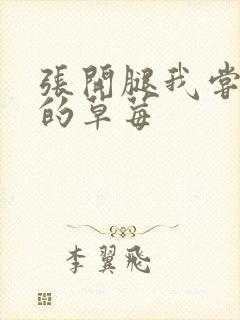 張開腿我嘗
的草莓
李翼飛